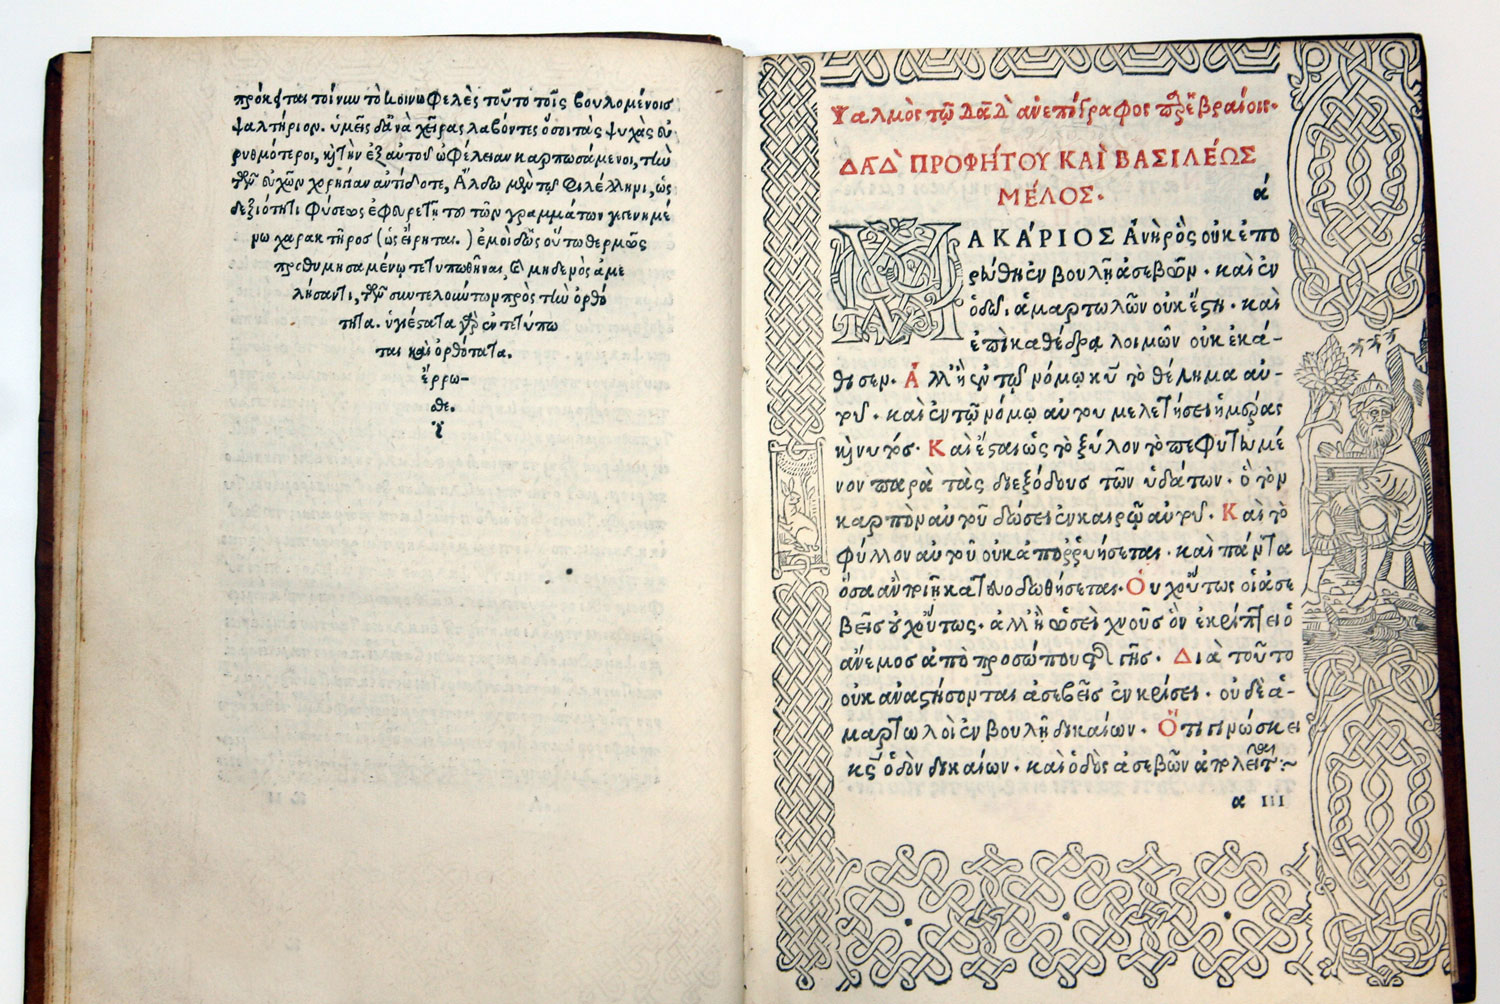 πρόκειται τοίνυν τὸ κοινωφελὲς τοῦτο τοῖς βουλομένοις
ψαλτήριον. ὑμεῖς δ' ἀνὰ χεῖρας λαβόντες ὅσοι τὰς ψυχὰς εὐ
ρυθμότεροι, καὶ τὴν ἐξ αὐτοῦ ὠφέλειαν καρπωσάμενοι, τὴν
τῶν εὐχῶν χορηγίαν ἀντίδοτε, Ἄλδῳ μὲν τῷ φιλέλληνι, ὡς
δεξιότητι φύσεως ἐφευρετῇ τοῦ τῶν γραμμάτων γεγενημέ
νῳ χαρακτῆρος (ὡς εἴρηται.) ἐμοὶ δ' ὡς οὕτω θερμῶς
προθυμησαμένῳ τετυπωθῆναι, καὶ μηδενὸς ἀμε
λήσαντι, τῶν συντελούντων πρὸς τὴν ὀρθό
τητα. ὑγιέστατα γὰρ ἐντετύπω
ται καὶ ὀρθότατα.
ἔρρω-
σθε.
Ψαλμὸς τῷ Δαδ ἀνεπίγραφος παρ' ἑβραίοις.
ΔΑΔ ΠΡΟΦΗΤΟΥ ΚΑῚ ΒΑΣΙΛΈΩΣ
ΜΈΛΟΣ.
ά
ΜΑΚΆΡΙΟΣ Ἀνὴρ ὃς οὐκ ἐπο
ρεύθη ἐν βουλῇ ἀσεβῶν. καὶ ἐν
ὁδῷ. ἁμαρτωλῶν οὐκ ἔστη. καὶ
ἐπὶ καθέδρα λοιμῶν οὐκ ἐκά-
θισεν. Ἀλλ' ἢ ἐν τῷ νόμῳ κυ τὸ θέλημα αὐ-
τοῦ. καὶ ἐν τῷ νόμῳ αὐτοῦ μελετήσει ἡμέρας
καὶ νυκτός. Καὶ ἔσται ὡς τὸ ξύλον τὸ πεφυτευμέ
νον παρὰ τὰς διεξόδους τῶν ὑδάτων. ὃ τὸν
καρπὸν αὐτοῦ δώσει ἐν καιρῷ αὐτοῦ. Καὶ τὸ
φύλλον αὐτοῦ οὐκ ἀποῤῥυήσεται. καὶ πάντα
ὅσα ἂν ποιῇ κατευοδωθήσεται. Οὐχ οὕτως οἱ ἀσε
βεῖς οὐχ οὕτως. ἀλλ' ἢ ὡσεὶ χνοῦς ὃν ἐκρίπτει ὁ
ἄνεμος ἀπὸ προσώπου τῆς γῆς. Διὰ τοῦτο
οὐκ ἀναστήσονται ἀσεβεῖς ἐν κρίσει. οὐδὲ ἁ-
μαρτωλοὶ ἐν βουλῇ δικαίων. Ὅτι γινώσκει
κς ὁδὸν δικαίων. καὶ ὁδὸς ἀσεβῶν ἀπολεῖται:~
α III